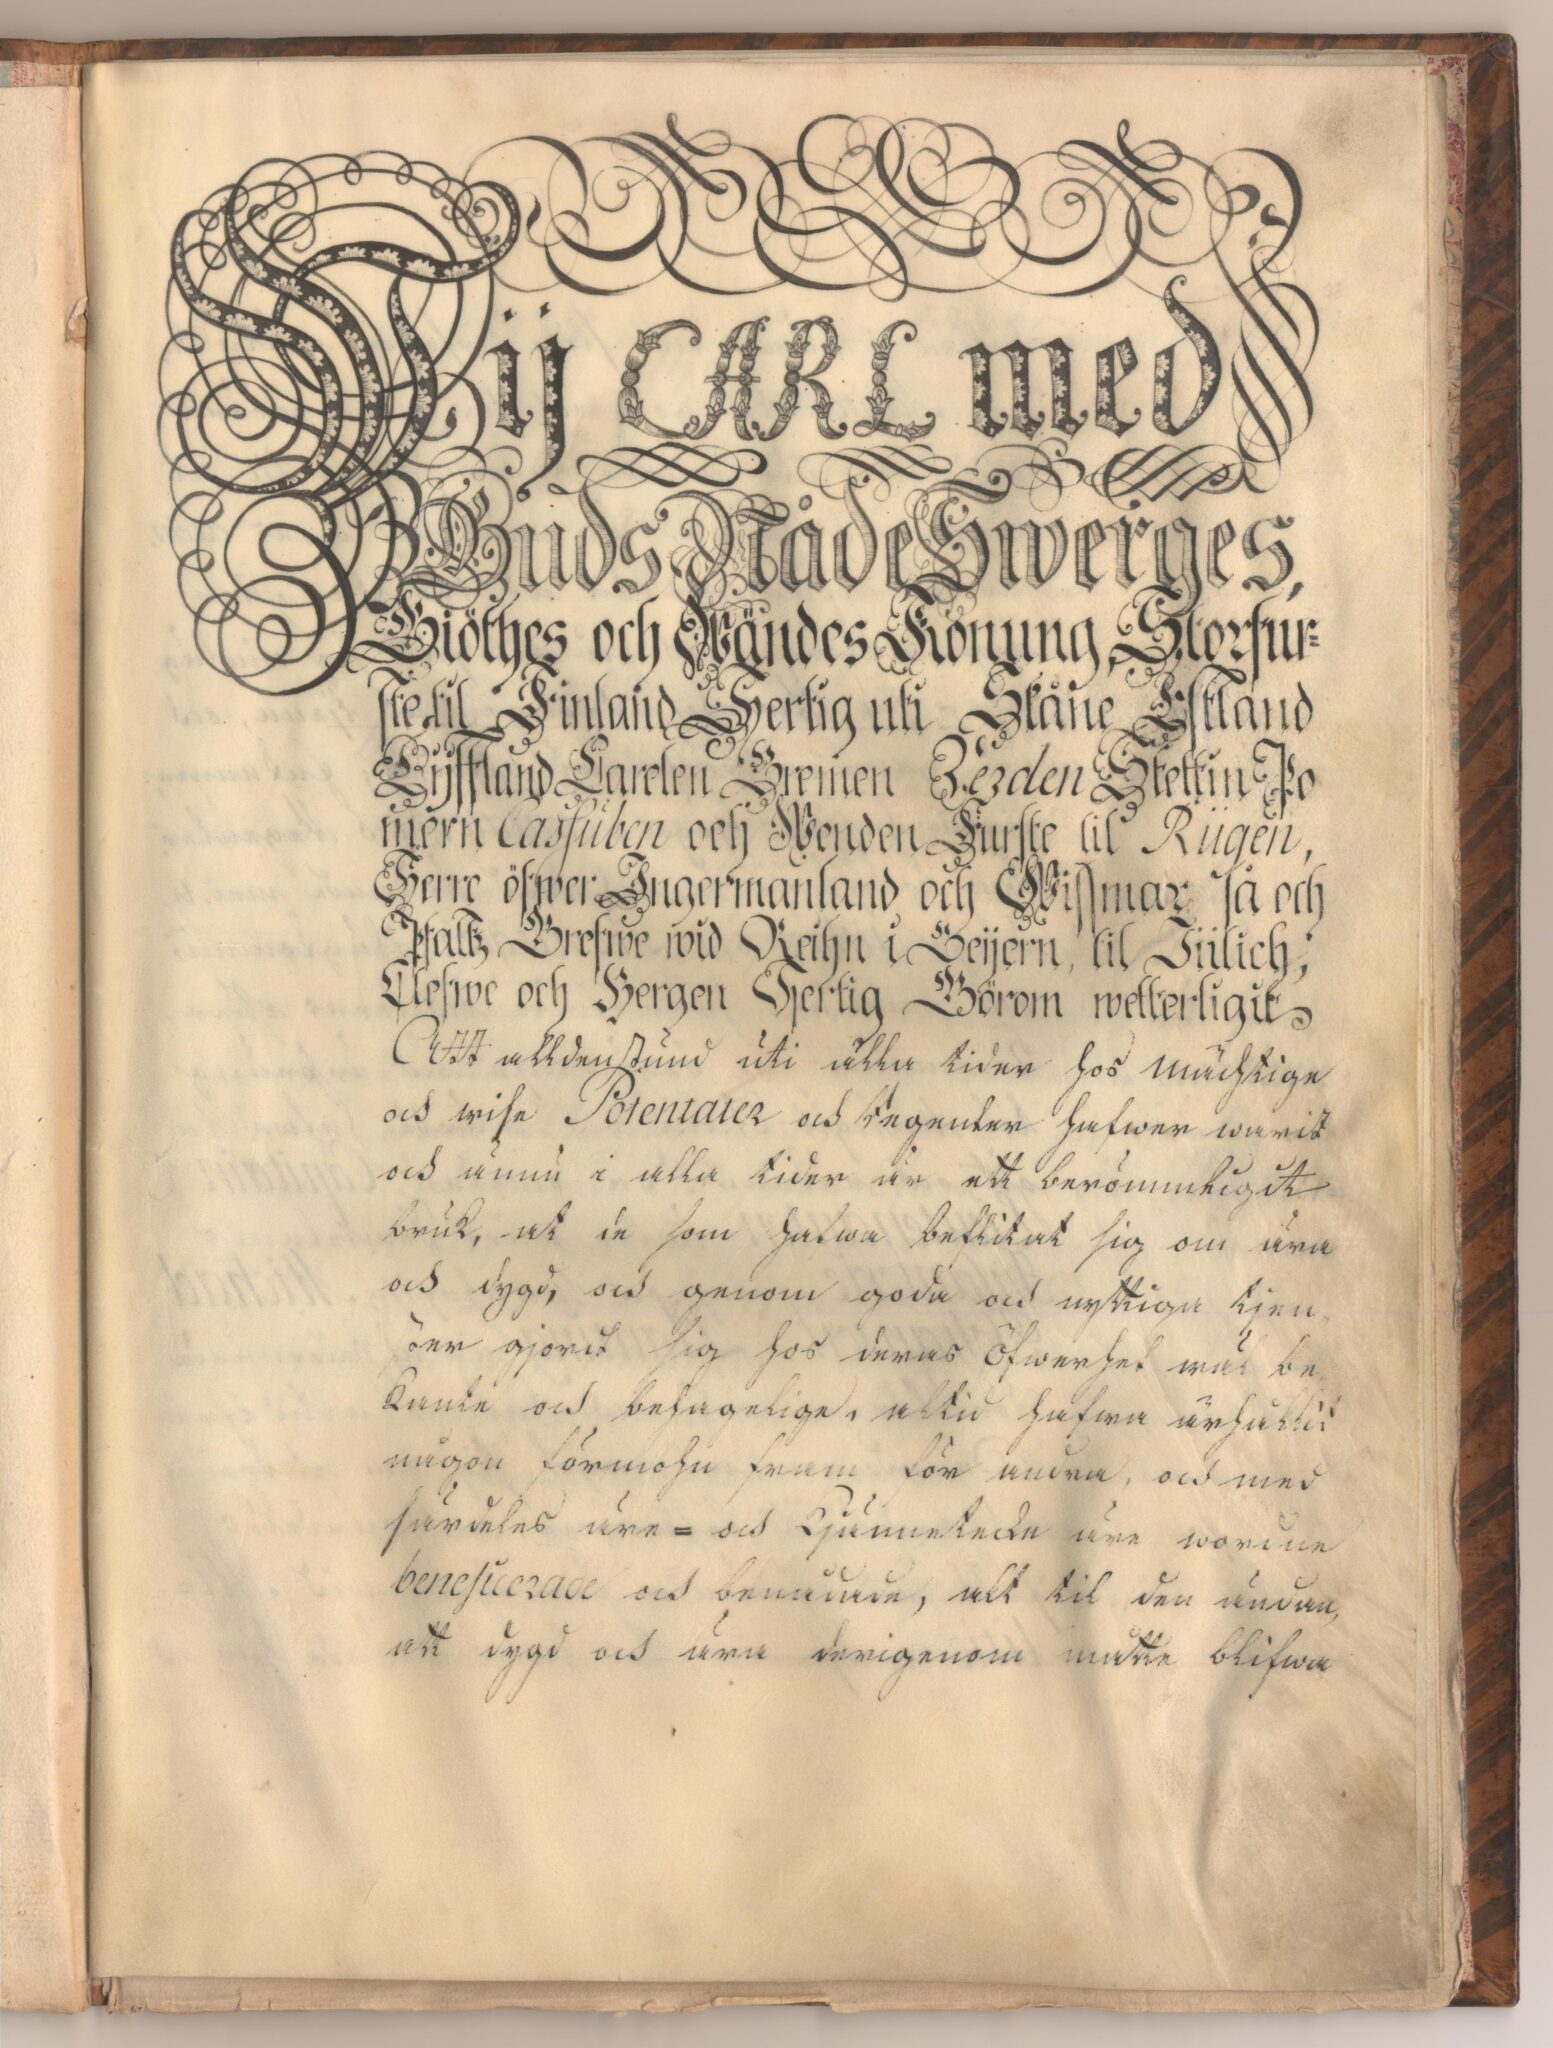 Wij CARL med
Guds Nåde Swerges,
Giöthes och Wändes Konung, Storfur-
ste til Finland Hertig uti Skåne Estland
Lyffland Carelen Bremen Verden Stettin Po
mern Cassuben och Wenden Furste til Rügen,
Herre öfwer Ingermanland och Wissmar, Så och
Pfaltz Grefwe wid Reihn i Beijern, til Jülich,
Clefwe och Bergen Hertig Görom wetterligit
Att alldenstund uti alla tider hos mächtige
och wise Potentater och Regenter hafwer warit
och ännu i alla tider är ett berömmligit
bruk, at de som hafwa beflitat sig om ära
och dygd, och genom goda och nyttiga tjen,
ster gjordt sig hos deras Öfwerhet wäl be,
kante och behagelige, altid hafwa ärhallit
någon förmohn fram för andra, och med
särdeles äre= och Kjännetecken äre wordne
beneficerade och benådade, alt til den ändan,
att dygd och ära derigenom matte blifwa